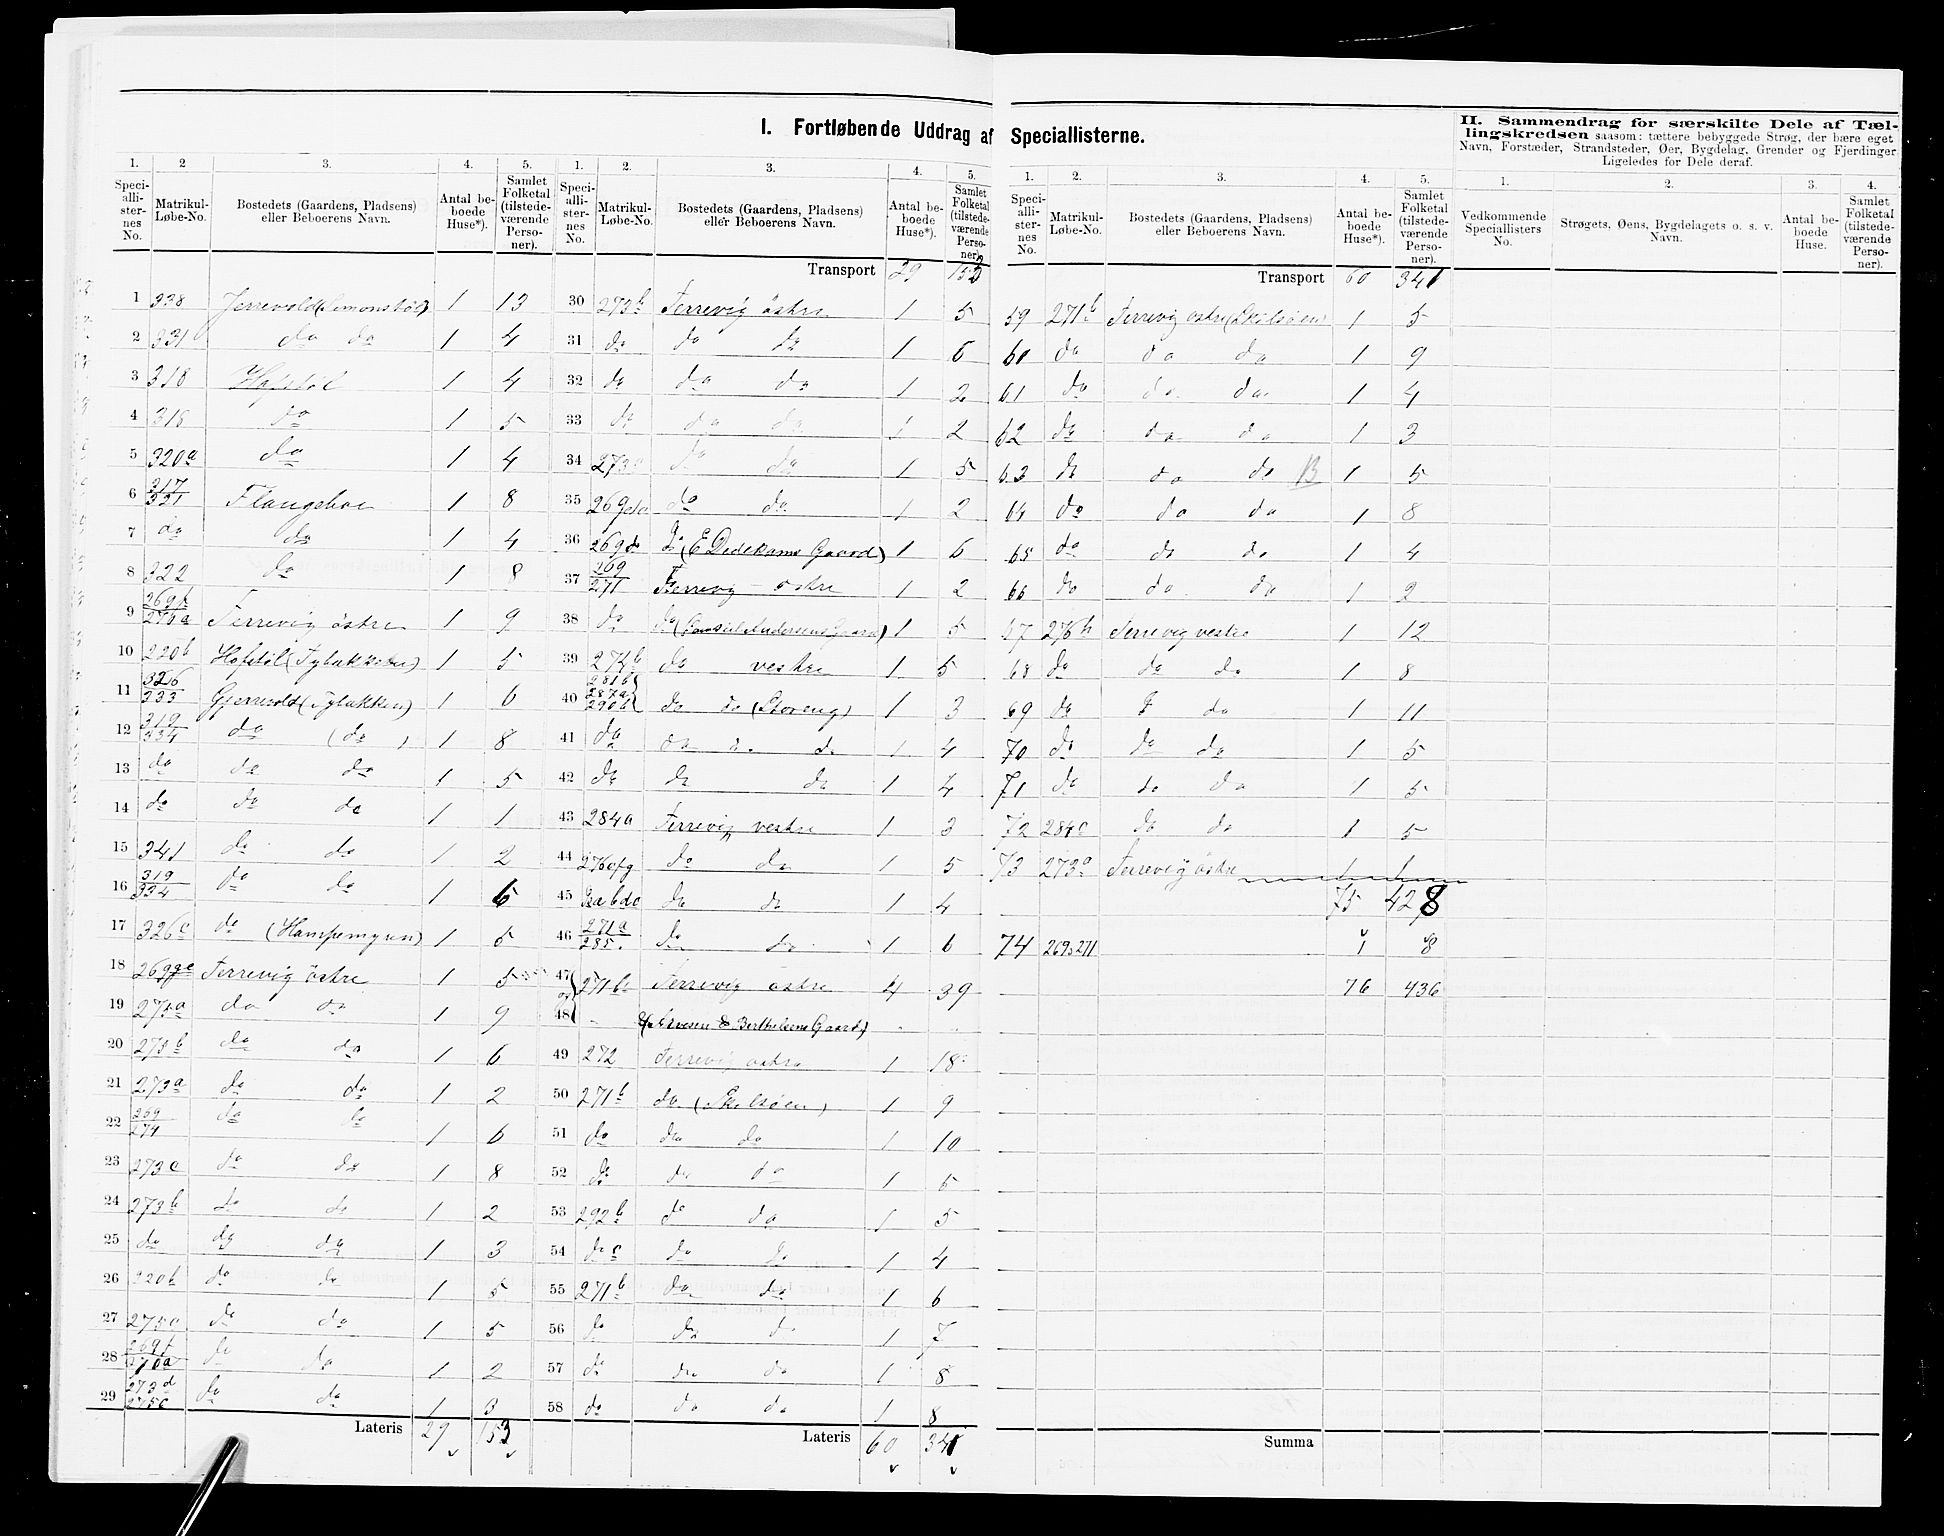 I. Fortløbende Uddrag af Speciallisterne.
II. Sammendrag for særskilte Dele af Tællingskredsen saasom: tættere bebyggede Strøg, der bære eget Navn, Forstæder, Strandsteder, Øer, Bygdelag, Grender og Fjerdinger. Ligeledes for Dele deraf.
1. 2 3. 4. 5. 1. 2. 3. 4. 5. 1. 2. 3. 4. 5. 1. 2. 3. 4.
Speciallisternes No. Matrikul-Løbe-No. Bostedets (Gaardens, Pladsens) eller Beboerens Navn. Antal beboede Huse*). Samlet Folketal (tilstedeværende Personer).
Speciallisternes No. Matrikul-Løbe-No. Bostedets (Gaardens, Pladsens) eller Beboerens Navn. Antal beboede Huse*). Samlet Folketal (tilstedeværende Personer).
Speciallisternes No. Matrikul-Løbe-No. Bostedets (Gaardens, Pladsens) eller Beboerens Navn. Antal beboede Huse*). Samlet Folketal (tilstedeværende Personer).
Vedkommende Speciallisters No. Strøgets, Øens, Bygdelagets o. s. v. Navn. Antal beboede Huse. Samlet Folketal (tilstedeværende Personer).
1 338 1 13
2 331 do do 1 4
3 318 Hofstöl 1 4
4 318 do 1 5
5 320a do 1 4
6 317/321 1 8
7 do do 1 4
8 322 do 1 8
9 Terrevig östre 1 9
10 1 5
11 326/333 1 6
12 319/334 do (do) 1 8
13 do do do 1 5
14 do do do 1 1
15 341 do do 1 2
16 319/334 do do 1 6
17 326c do (Hampemyren) 1 5
18 Terrevig östre 1 5
19 do do 1 9
20 273b do do 1 6
21 273a do do 1 2
22 do do 1 6
23 273c do do 1 8
24 273b do do 1 2
25 do do do 1 3
26 do do 1 5
27 do do 1 5
28 do do 1 2
29 do do 1 3
Lateris 29 153
Transport 29 153
30 273b Terrevig östre 1 5
31 do do do 1 6
32 do do do 1 2
33 do do do 1 2
34 do do 1 5
35 do do 1 2
36 do (E Dedekams Gaard) 1 6
37 269/271 Terrevig östre 1 2
38 do 1 5
39 274b do vestre 1 5
40 281b 287a 290b do do (Storeng) 1 3
41 do do do do 1 4
42 do do do 1 4
43 284a Terrevig vestre 1 3
44 do do 1 5
45 do do 1 4
46 271a/285 do do 1 6
47 og 48 271b Terrevig östre 4 39
49 272 Terrevig östre 1 18
50 271b do (Skilsöen) 1 9
51 do do do 1 10
52 do do do 1 5
53 292b do do 1 5
54 do c do do 1 4
55 271b do do 1 6
56 do do do 1 7
57 do do do 1 8
58 do do do 1 8
Lateris 60 341
Transport 60 341
59 271b Terrevig östre (Skilsöen) 1 5
60 do do do 1 9
61 do do do 1 4
62 do do do 1 3
63 do do do B 1 5
64 do do do 1 8
65 do do do 1 4
66 do do do 1 2
67 276h Terrevig vestre 1 12
68 do do do 1 8
69 do do do 1 11
70 do do do 1 5
71 do do do 1 5
72 284c do do 1 5
73 273a Terrevig östre 1 1
75 428
74 269 271 1 8
76 436
Summa